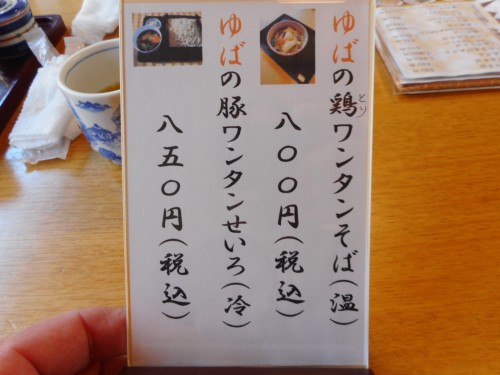 ゆばの鶏ワンタンそば(温)
とり
八〇〇円(税込)
ゆばの豚ワンタンせいろ(冷)
八五〇円(税込)